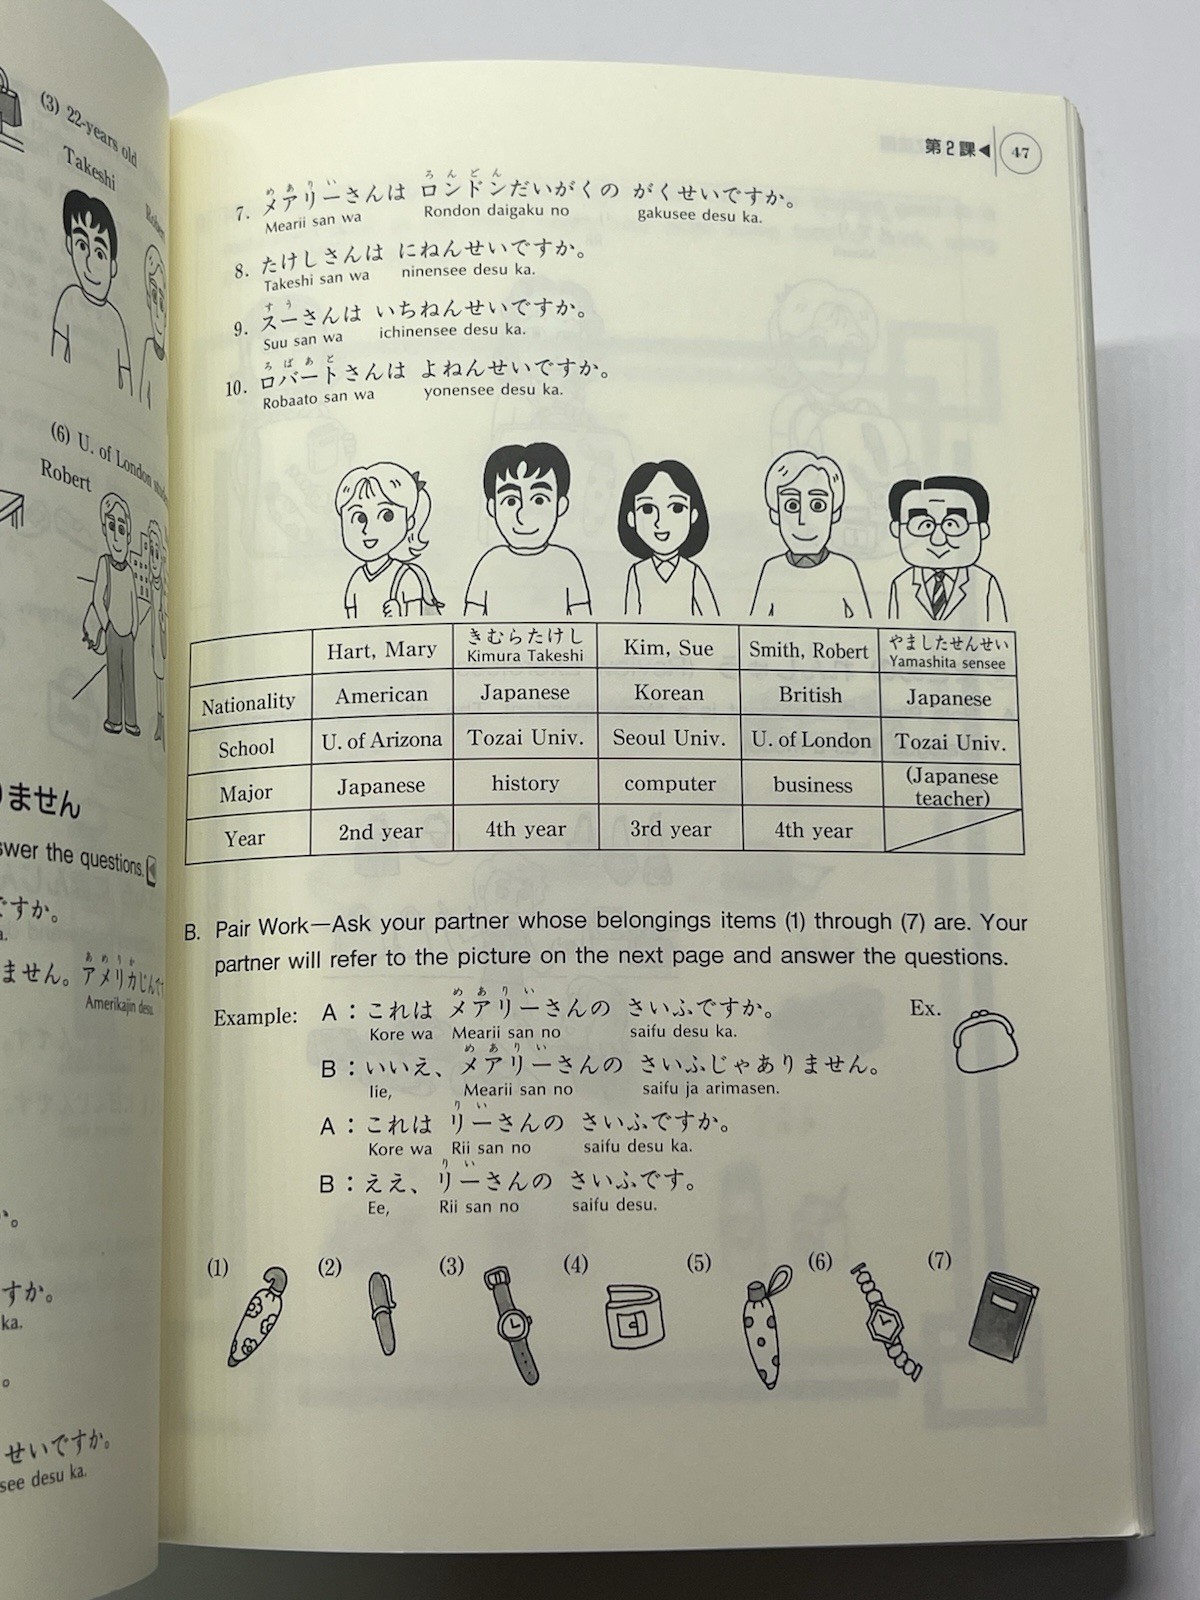 (3) 22-years old
Takeshi
(6) U. of London
Robert
ません
swer the questions.
ですか。
ません。アメリカじんです
あめりか
Amerikajin desu
か。
すか。
ka.
せいですか。
see desu ka.
第2課 47
めありい ろんどん
7. メアリーさんは ロンドンだいがくの がくせいですか。
Mearii san wa Rondon daigaku no gakusee desu ka.
8. たけしさんは にねんせいですか。
Takeshi san wa ninensee desu ka.
すう
9. スーさんは いちねんせいですか。
Suu san wa ichinensee desu ka.
ろばあと
10. ロバートさんは よねんせいですか。
Robaato san wa yonensee desu ka.
Hart, Mary きむらたけし Kimura Takeshi Kim, Sue Smith, Robert やましたせんせい Yamashita sensee
Nationality American Japanese Korean British Japanese
School U. of Arizona Tozai Univ. Seoul Univ. U. of London Tozai Univ.
Major Japanese history computer business (Japanese teacher)
Year 2nd year 4th year 3rd year 4th year
B. Pair Work—Ask your partner whose belongings items (1) through (7) are. Your
partner will refer to the picture on the next page and answer the questions.
めありい
Example: A：これは メアリーさんの さいふですか。 Ex.
Kore wa Mearii san no saifu desu ka.
めありい
B：いいえ、メアリーさんの さいふじゃありません。
Iie, Mearii san no saifu ja arimasen.
りい
A：これは リーさんの さいふですか。
Kore wa Rii san no saifu desu ka.
りい
B：ええ、リーさんの さいふです。
Ee, Rii san no saifu desu.
(1) (2) (3) (4) (5) (6) (7)